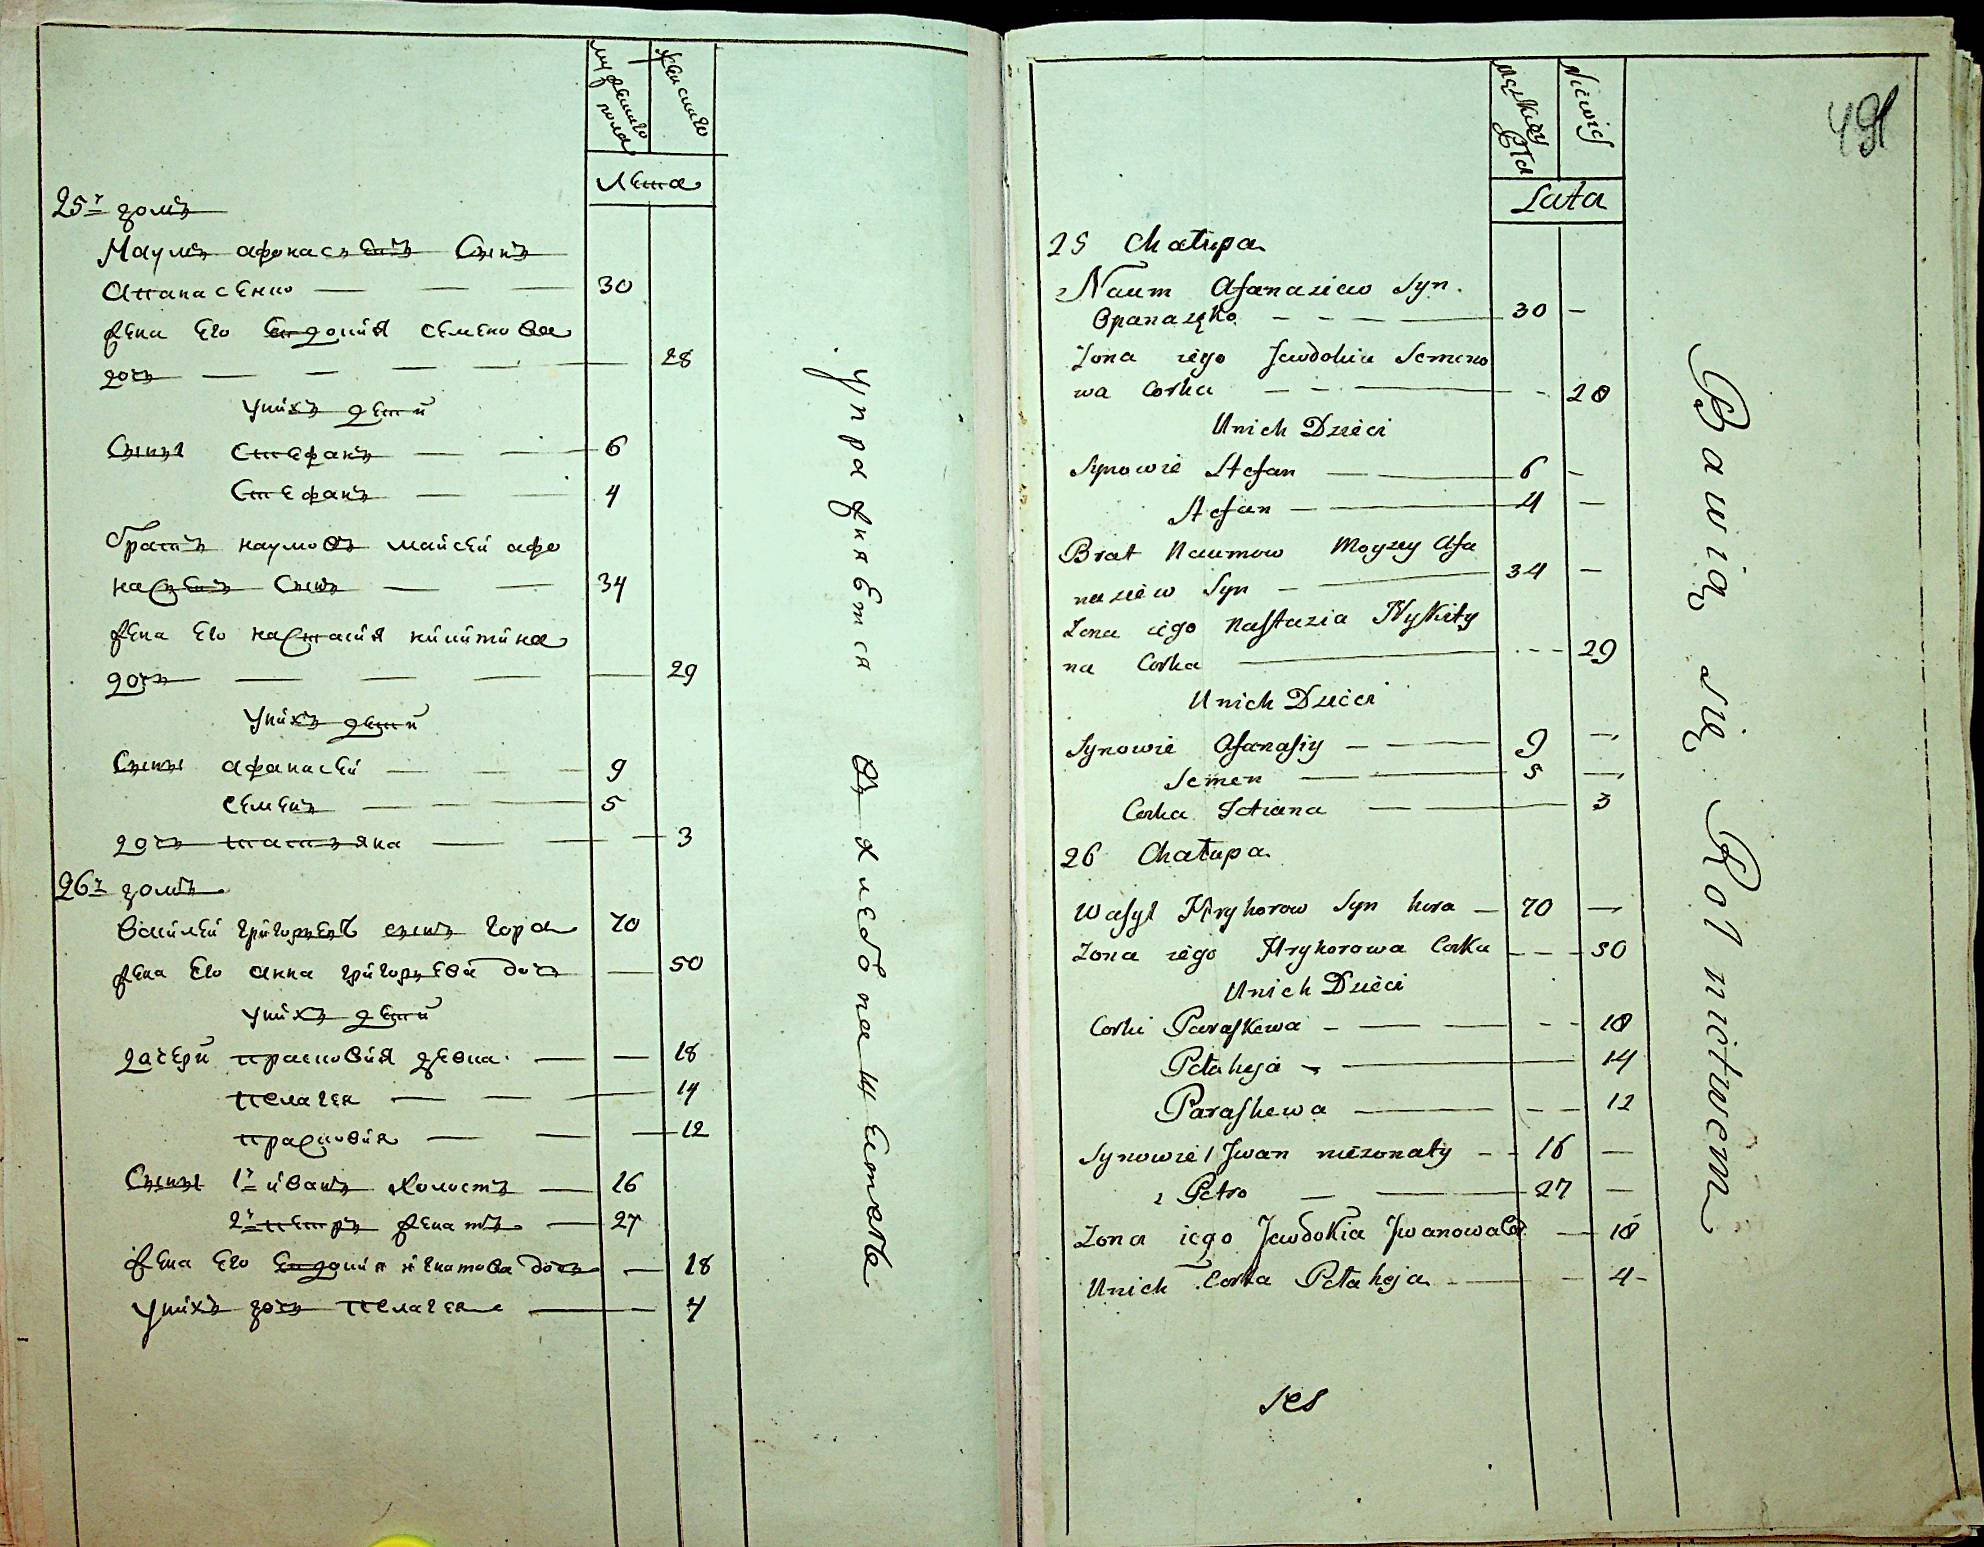 мужеска пола
женскаго
Лета
25й домъ
Наумъ афонасьевъ Сынъ
Аπанасенко — — — 30
жена Его Евдокия семенова
дочь — — — — — 28
Унихъ дети
Сыны Стефанъ — — 6
Стефанъ — — 4
братъ наумовъ майсей афо
насьевъ Сынъ — — 34
жена Его настасия никитина
дочь — — — — 29
Унихъ дети
Сыны афанасей — — — 9
семенъ — — — 5
дочь татьяна — — — 3
26й домъ
Василей григорьевъ сынъ гора 70
жена Его анна григорьева дочь — 50
Унихъ дети
дочери прасковия девка — — 18
пелагея — — — 14
прасковия — — — 12
Сыны 1й иванъ холостъ — 16
2й петръ женатъ — 27
жена Его Евдокия игнатова дочь — 18
Унихъ дочь пелагея — — 4
упражняется въ хлебопашестве
491
Męzkiey Płci
Niewie
Lata
25 Chałupa
Naum Afanasiew Syn
Opanaszko — — — 30 —
Zona iego Jewdokia Semeno
wa Corka — — — - 28
Unich Dzieci
Synowie Stefan — — 6 —
Stefan — — 4 —
Brat Naumow Moyzey Afa
nasiew Syn — — 34 —
Zona iego Nastazia Mykity
na Corka — — - - - 29
Unich Dzieci
Synowie Afanasiy — — 9 —
Semen — — 5 —
Corka Tatiana — — 3
26 Chałupa
Wasyl Hryhorow Syn hora — 70 —
Zona iego Hryhorowa Corka - - - 50
Unich Dzieci
Corki Paraskewa — — — - - 18
Pełaheja — — 14
Paraskewa — — - - 12
Synowie 1 Iwan nieżonaty - - 16 —
2 Petro — — 27 —
Zona iego Jewdokia Iwanowa Cor — 18
Unich Corka Pełaheja — — 4 -
ses
Bawią się Rolnictwem